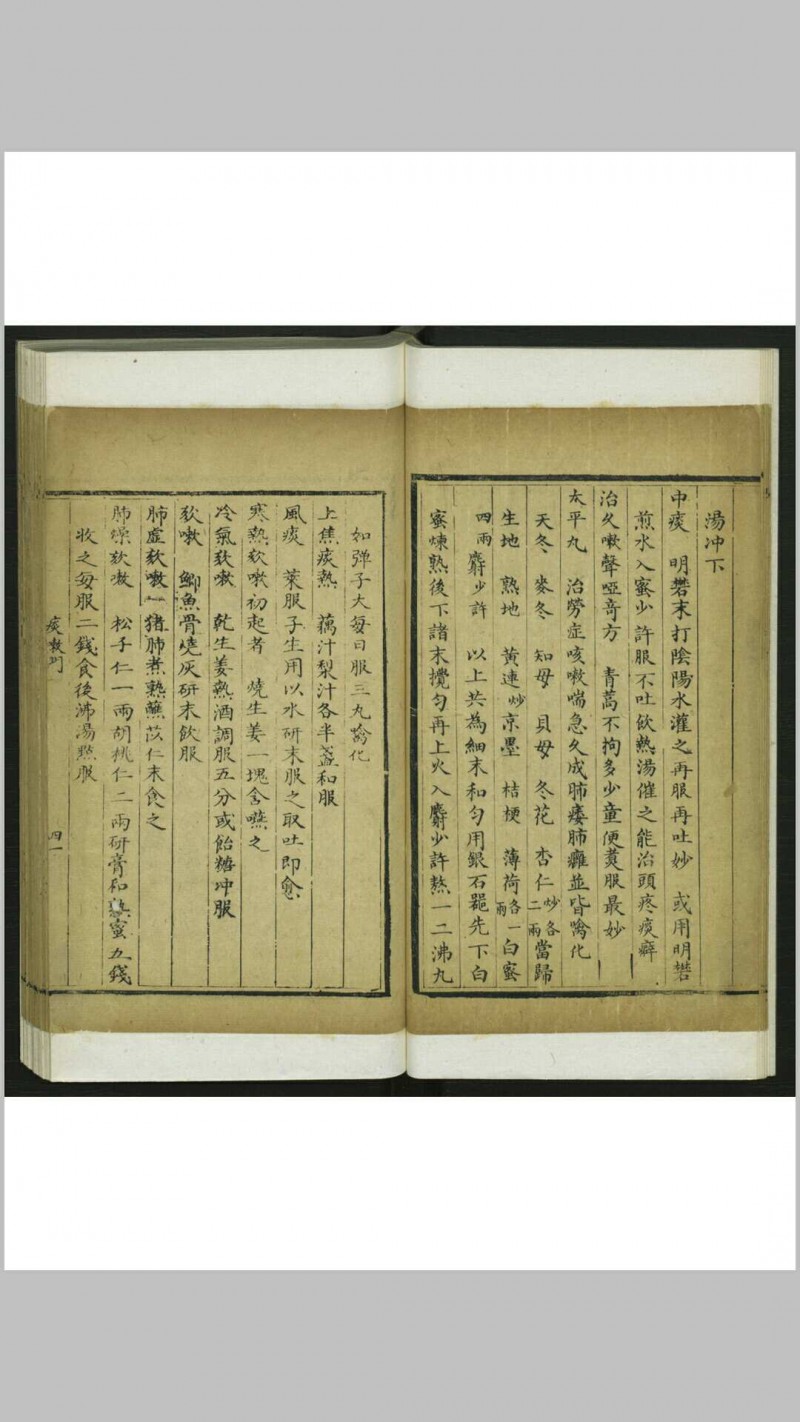 湯冲下
中痰　明礬末打陰陽水灌之再服再吐妙　或用明礬
煎水入蜜少許服不吐飲熱湯催之能治頭疼痰癖
治久嗽聲啞竒方　青蒿不拘多少童便煑服最妙
太平丸　治勞症咳嗽喘急久成肺痿肺癰並皆噙化
天冬　麥冬　知母　貝母　冬花　杏仁炒各二兩當歸
生地　熟地　黄連炒　京墨　桔梗　薄荷各一兩白蜜
四兩麝少許　以上共為細末和匀用銀石噐先下白
蜜煉熟後下諸末攪匀再上火入麝少許熬一二沸丸
如弹子大每日服三丸噙化
上焦痰熱　藕汁梨汁各半盞和服
風痰　萊服子生用以水研末服之取吐即愈
寒熱欬嗽初起者　燒生姜一塊含嚥之
冷氣欬嗽　乾生姜熟酒調服五分或飴糖冲服
欬嗽　鯽魚骨燒灰研末飲服
肺虚欬嗽　猪肺煮熟蘸苡仁末食之
肺燥欬嗽　松子仁一兩胡桃仁二兩研膏和熟蜜五錢
收之每服二錢食後沸湯㸃服
痰嗽門
四一